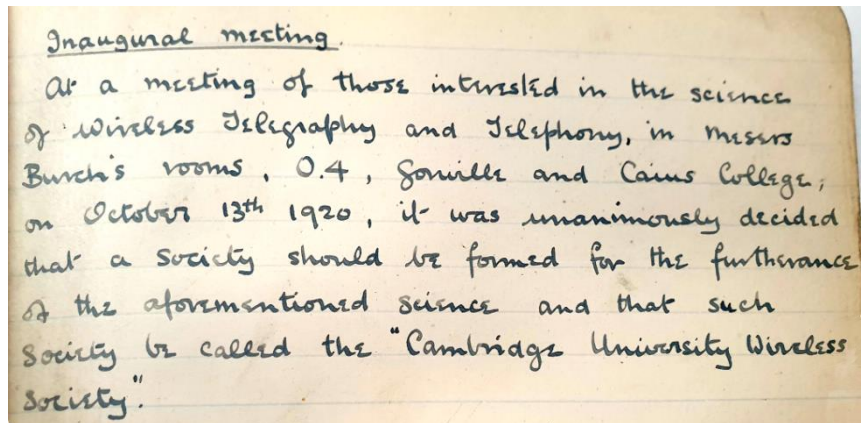 Inaugural meeting.
At a meeting of those interested in the science
of Wireless Telegraphy and Telephony, in Messrs
Burch's rooms, O.4, Gonville and Caius College,
on October 13th 1920, it was unanimously decided
that a Society should be formed for the furtherance
of the aforementioned science and that such
Society be called the "Cambridge University Wireless
Society".